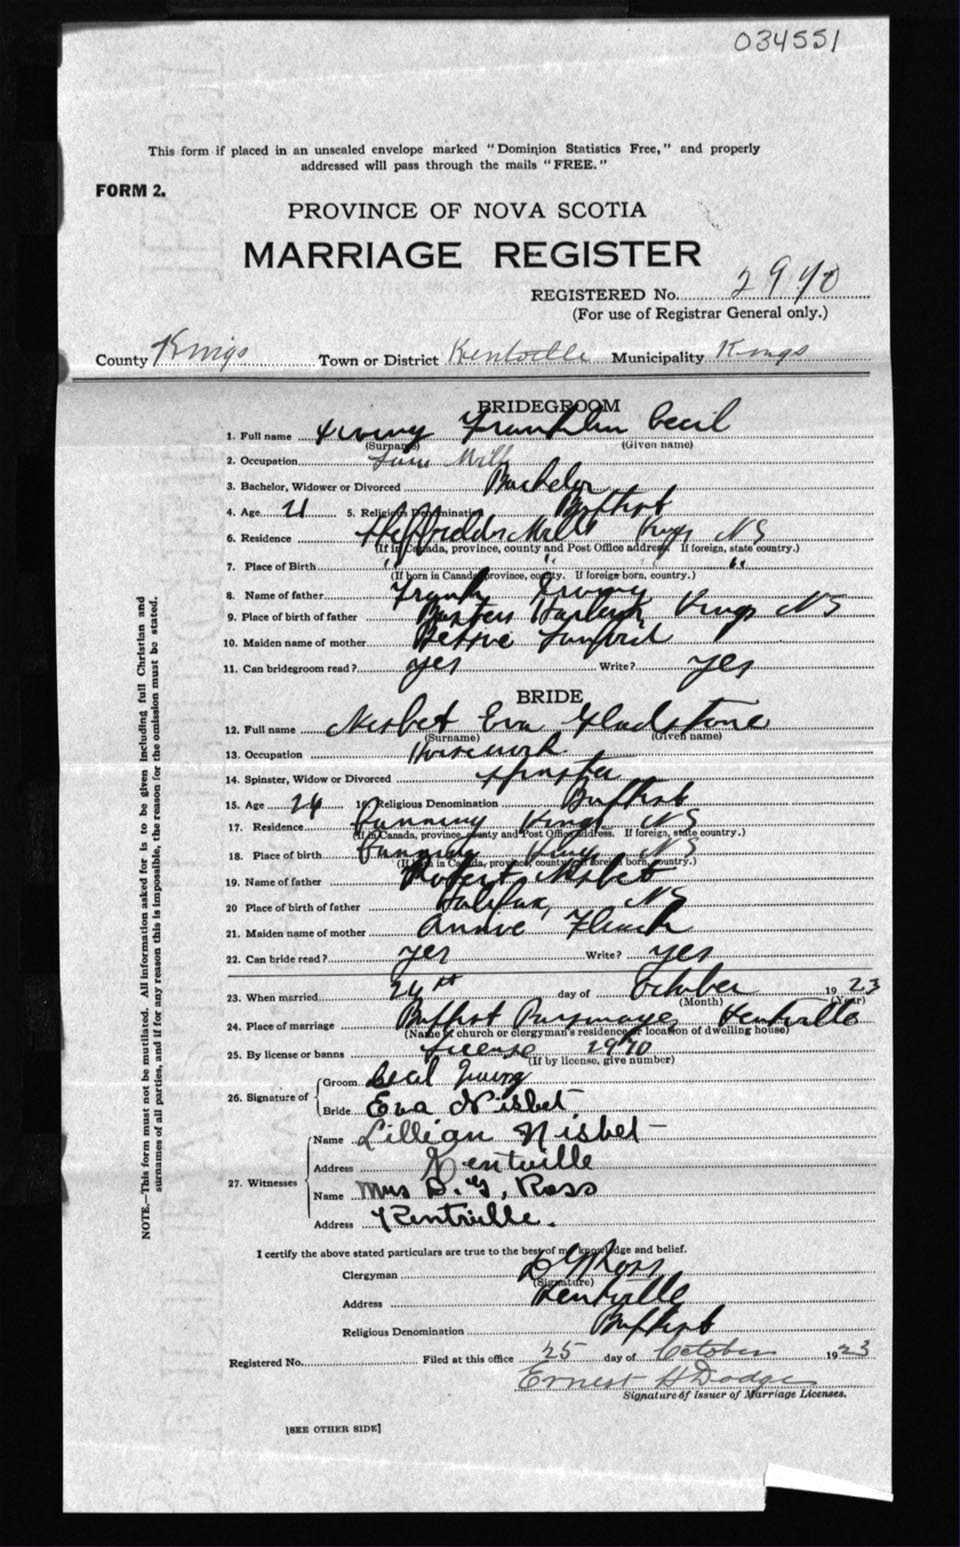 034551
This form if placed in an unsealed envelope marked "Dominion Statistics Free," and properly
addressed will pass through the mails "FREE."
FORM 2.
PROVINCE OF NOVA SCOTIA
MARRIAGE REGISTER
REGISTERED No. 2970
(For use of Registrar General only.)
County Kings Town or District Kentville Municipality Kings
BRIDEGROOM
1. Full name Irving Franklin Cecil
(Surname) (Given name)
2. Occupation Mill
3. Bachelor, Widower or Divorced Bachelor
4. Age 21 5. Religious Denomination Baptist
6. Residence Mills Kings NS
(If in Canada, province, county and Post Office address. If foreign, state country.)
7. Place of Birth " " "
(If born in Canada, province, county. If foreign born, country.)
8. Name of father Frank Irving
9. Place of birth of father Harbour Kings NS
10. Maiden name of mother Bessie Sanford
11. Can bridegroom read? yes Write? yes
BRIDE
12. Full name Nisbet Eva Gladstone
(Surname) (Given name)
13. Occupation Housework
14. Spinster, Widow or Divorced Spinster
15. Age 26 16. Religious Denomination Baptist
17. Residence Canning Kings NS
(If in Canada, province, county and Post Office address. If foreign, state country.)
18. Place of birth Canning Kings NS
(If born in Canada, province, county. If foreign born, country.)
19. Name of father Robert Nisbet
20 Place of birth of father Halifax, NS
21. Maiden name of mother Annie
22. Can bride read? yes Write? yes
23. When married 24th day of October 1923
(Month) (Year)
24. Place of marriage Baptist Parsonage Kentville
(Name of church or clergyman's residence or location of dwelling house)
25. By license or banns License 2970
(If by license, give number)
26. Signature of
Groom Cecil Irving
Bride Eva Nisbet
27. Witnesses
Name Lillian Nisbet
Address Kentville
Name Mrs D. G. Ross
Address Kentville.
I certify the above stated particulars are true to the best of my knowledge and belief.
Clergyman D G Ross
(Signature)
Address Kentville
Religious Denomination Baptist
Registered No. Filed at this office 25 day of October 1923
Ernest H Dodge
Signature of Issuer of Marriage Licenses.
[SEE OTHER SIDE]
NOTE.—This form must not be mutilated. All information asked for is to be given including full Christian and
surnames of all parties, and if for any reason this is impossible, the reason for the omission must be stated.